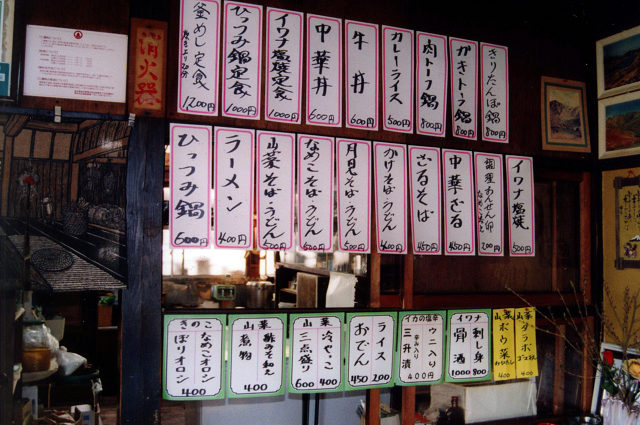 消火器
釜めし定食
1200円
ひっつみ鍋定食
1000円
イワナ塩焼定食
1000円
中華丼
600円
牛丼
600円
カレーライス
500円
肉トーフ鍋
800円
かきトーフ鍋
800円
きりたんぽ鍋
800円
ひっつみ鍋
600円
ラーメン
400円
山菜そば・うどん
500円
なめこそば・うどん
500円
月見そば・うどん
500円
かけそば・うどん
400円
ざるそば
450円
中華ざる
450円
200円
イワナ塩焼
500円
きのこ
なめこオロシ
ぼりオロシ
400
山菜
酢みそ和え
煮物
400
山菜
冷やっこ
三点盛り
600 400
おでん
450
ライス
200
イカの塩辛
ウニ入り
三升漬
400円
イワナ
刺し身
骨酒
1000 800
山菜
ボウ菜
400
山菜
タラボ
400